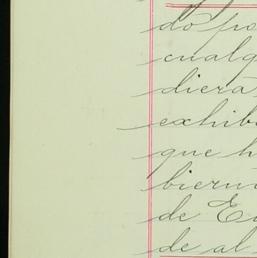 do po
cualq
diera
exhib
que h
biern
de En
de al